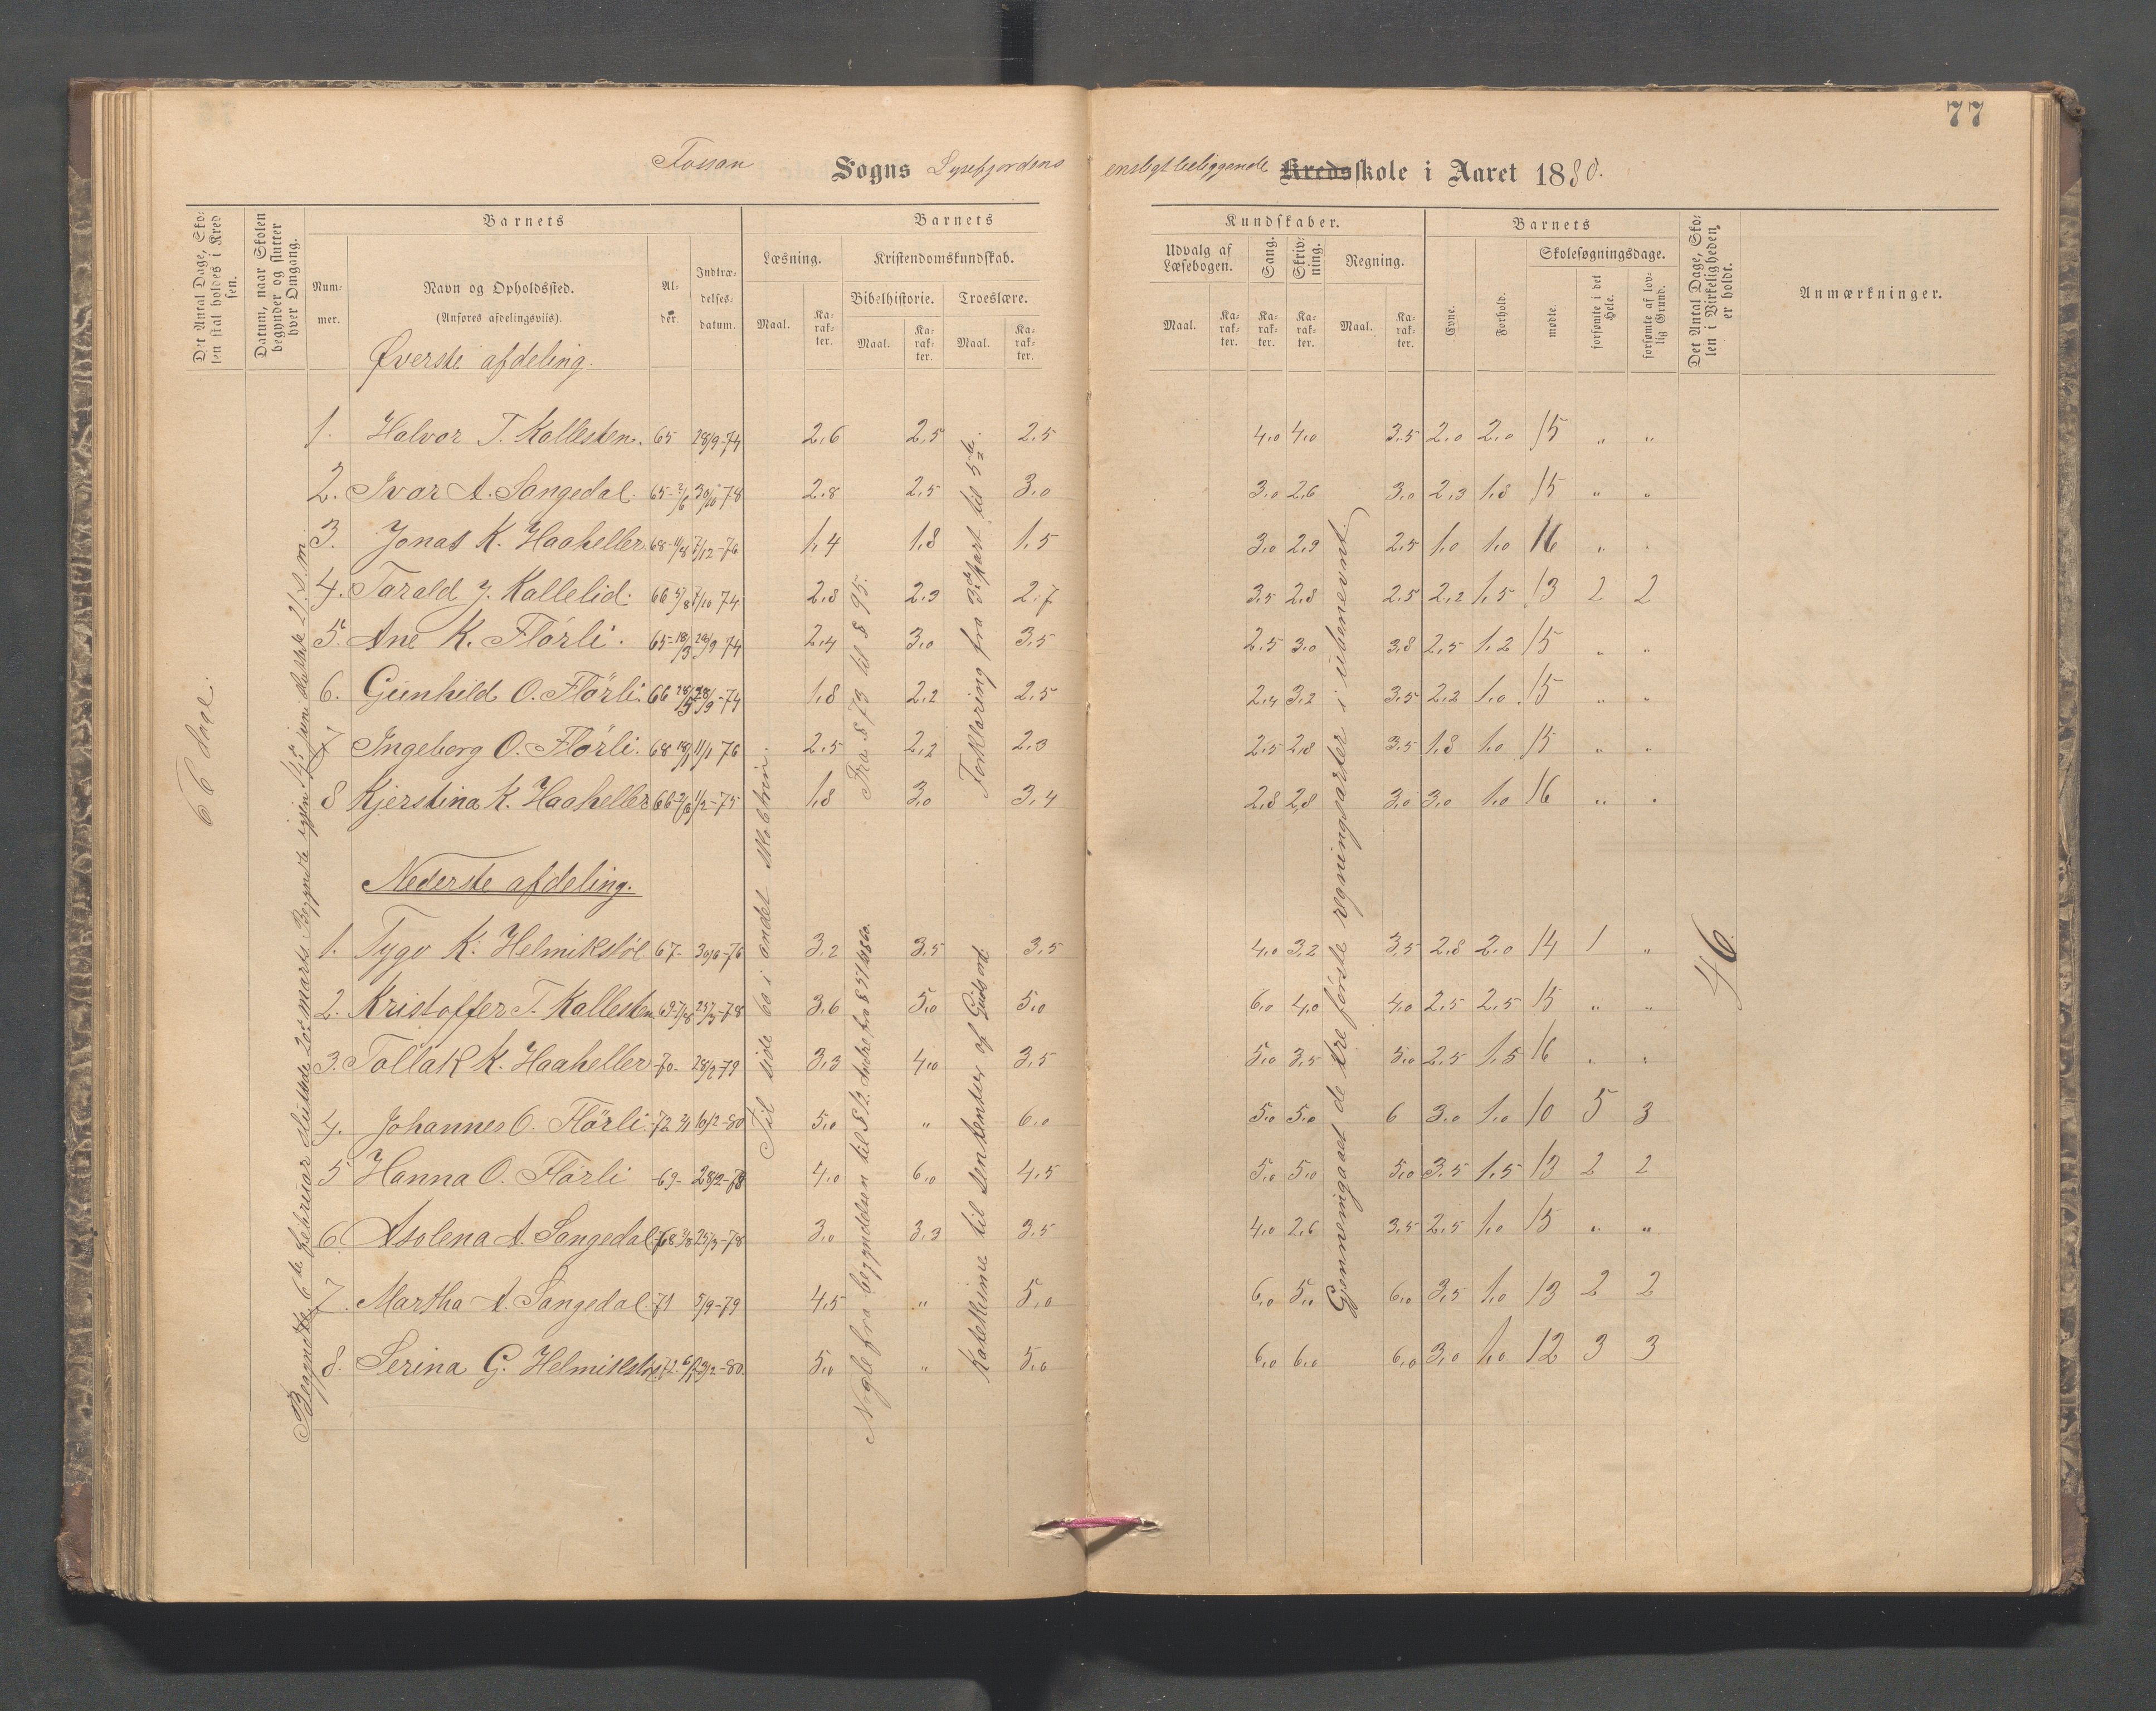 77
Fossan Sogns Lysefjordens ensligtbeliggende Kredsskole i Aaret 1880.
Det Antal Dage, Skolen skal holdes i Kredsen.
Datum, naar Skolen begynder og slutter hver Omgang.
Barnets
Nummer.
Navn og Opholdssted.
(Anføres afdelingsviis).
Alder.
Indtrædelsesdatum.
Barnets
Læsning.
Kristendomskundskab.
Bibelhistorie. Troeslære.
Maal. Karakter. Maal. Karakter. Maal. Karakter.
Kundskaber.
Udvalg af Læsebogen. Sang. Skrivning. Regning.
Maal. Karakter. Karakter. Karakter. Maal. Karakter.
Barnets
Evne. Forhold.
Skolesøgningsdage.
mødte. forsømte i det Hele. forsømte af lovlig Grund.
Det Antal Dage, Skolen i Virkeligheden er holdt.
Anmærkninger.
Øverste afdeling.
1. Halvor T. Kallesten. 65 28/9-74 2,6 2,5 2,5 4,0 4,0 3,5 2,0 2,0 15 " "
2. Ivar A. Sangedal. 65- 30/10-78 2,8 2,5 3,0 3,0 2,6 3,0 2,3 1,8 15 " "
3. Jonas K. Haaheller 68-11/8 7/12-76 1,4 1,8 1,5 3,0 2,9 2,5 1,0 1,0 16 " "
4. Tarald J. Kallelid. 66 7/10 74 2,8 2,9 2,7 3,5 2,8 2,5 2,2 1,5 13 2 2
5. Ane K. Flörli. 65-18/3 28/9 74 2,4 3,0 3,5 2,5 3,0 3,8 2,5 1,2 15 " "
6. Gunhild O. Flörli. 66 28/5 28/9-74 1,8 2,2 2,5 2,4 3,2 3,5 2,2 1,0 15 " "
7 Ingeborg O. Flörli. 68 11/1 76 2,5 2,2 2,3 2,5 2,8 3,5 1,8 1,0 15 " "
8 Kjerstina K. Haaheller 66 1/2-75 1,8 3,0 3,4 2,8 2,8 3,0 3,0 1,0 16 " "
Nederste afdeling.
1. Tygo K. Helmikstöl 67- 30/6-76 3,2 3,5 3,5 4,0 3,2 3,5 2,8 2,0 14 1 "
2. Kristoffer T. Kallesten 69-7/8 25/3-78 3,6 5,0 5,0 6,0 4,0 4,0 2,5 2,5 15 " "
3. Tollak K. Haaheller -70- 28/2-79 3,3 4,0 3,5 5,0 3,5 5,0 2,5 1,5 16 " "
4. Johannes O. Flörli. -72 10/2-80 5,0 " 6,0 5,0 5,0 6 3,0 1,0 10 5 3
5 Hanna O. Flörli -69- 28/2-78 4,0 6,0 4,5 5,0 5,0 5,0 3,5 1,5 13 2 2
6. Asolena A. Sangedal. 68 3/8 25/3-78 3,0 3,3 3,5 4,0 2,6 3,5 2,5 1,0 15 " "
7. Martha A. Sangedal. -71 5/9-79 4,5 " 5,0 6,0 5,0 6,0 3,5 1,0 13 2 2
8. Serina G. Helmikstöl 72. 23/2-80. 5,0 " 5,0 6,0 6,0 6,0 3,0 1,0 12 3 3
66 dage.
Begyndte 6te februar sluttede 20de marts. Begyndte igjen 14de juni sluttede 21. s.m
Til side 60 i andet skoletrin.
Fra § 73 til § 95.
Nogle fra begyndelsen til § 12. Andre fra § 51
Forklaring fra 3die part til 5te.
Katekisme til senkenter af Guds ord.
Gjennemgaaet de tre förste regningsarter i ubenevnt.
46.